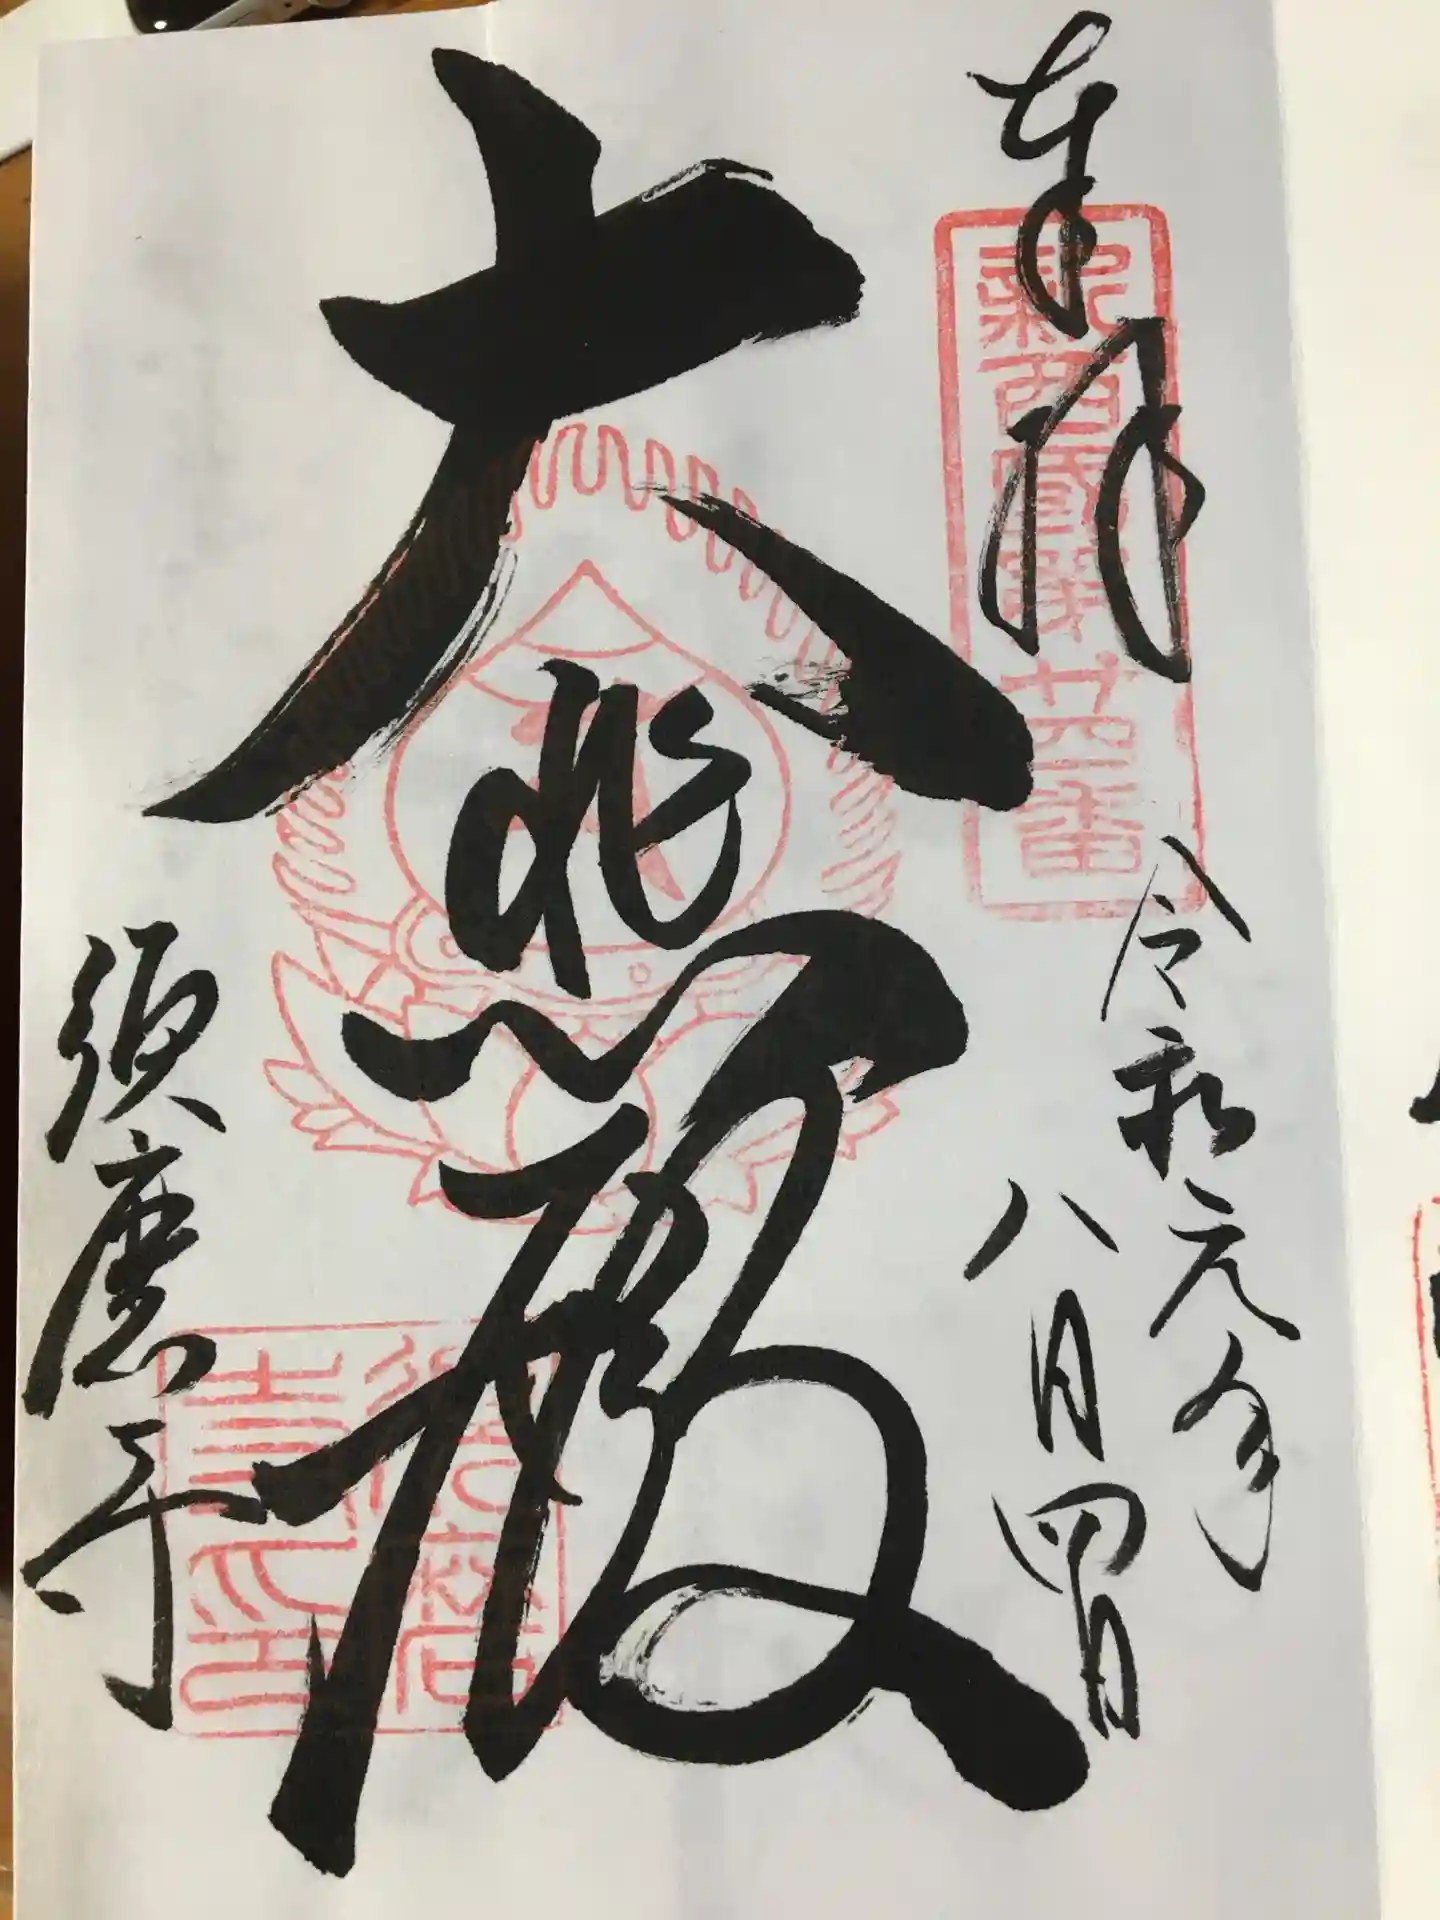 奉拝
新西国第廿四番
令和元年
八月四日
大悲殿
須磨寺
須磨寺印